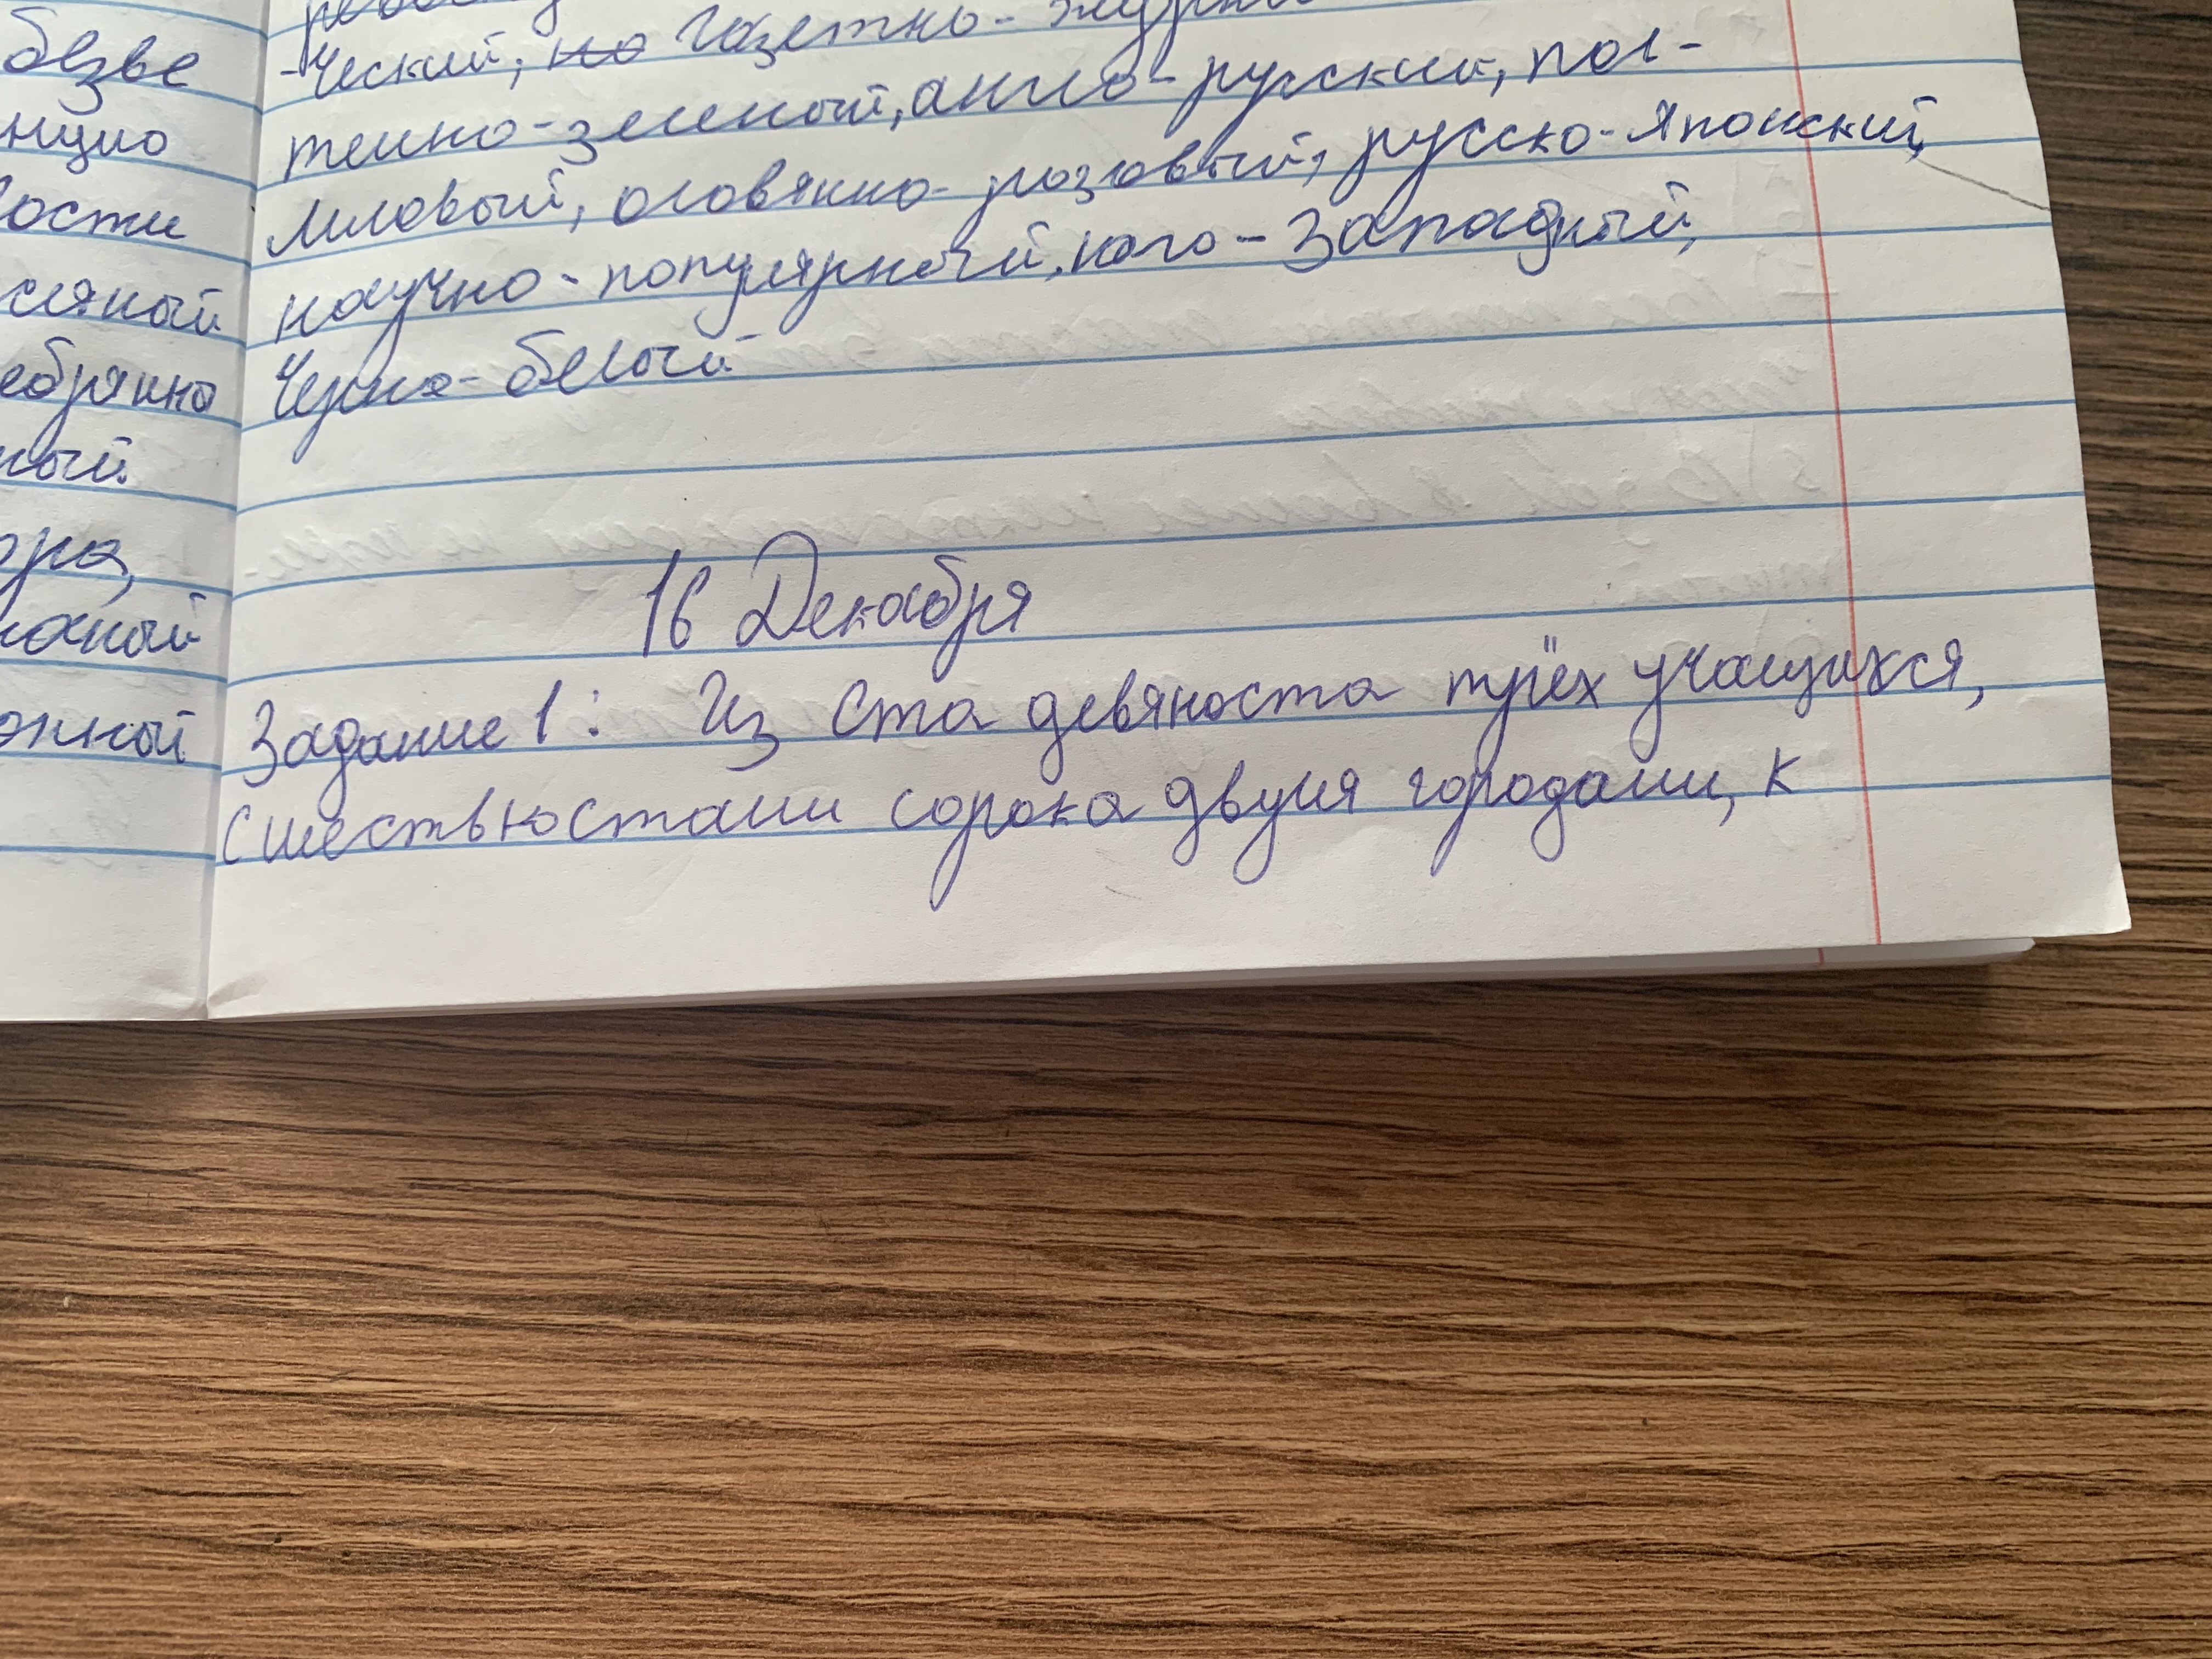 безве
нцио
ости
сяный
ебрянно
ный.
ора,
ожный
-ческий, но газетно-
темно-зеленый, англо-русский, пол-
миловый, оловянно-розовый, русско-Японский,
научно-популярный, юго-Западный,
Черно-белый
16 Декабря
Задание 1: Из ста девяноста трёх учащихся,
с шестьюстами сорока двумя городами, к